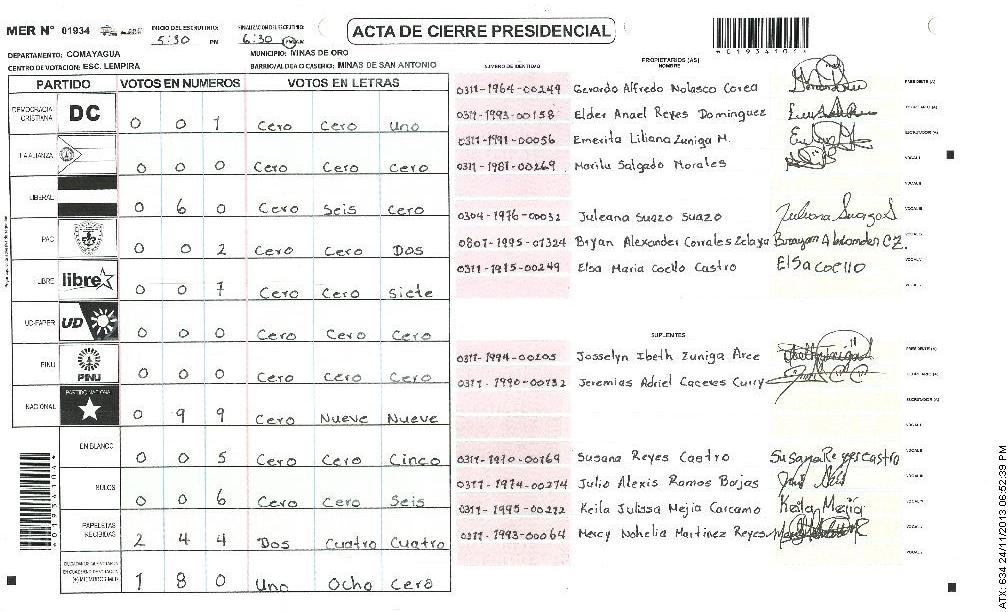 MER Nº 01934
INICIO DEL ESCRUTINIO: 5:30 PM
FINALIZACION DEL ESCRUTINIO: 6:30 PM
ACTA DE CIERRE PRESIDENCIAL
DEPARTAMENTO: COMAYAGUA
MUNICIPIO: MINAS DE ORO
CENTRO DE VOTACION: ESC. LEMPIRA
BARRIO/ALDEA O CASERIO: MINAS DE SAN ANTONIO
PARTIDO VOTOS EN NUMEROS VOTOS EN LETRAS
DEMOCRACIA CRISTIANA DC 0 0 1 Cero Cero Uno
LA ALIANZA 0 0 0 Cero Cero Cero
LIBERAL 0 6 0 Cero Seis Cero
PAC 0 0 2 Cero Cero Dos
LIBRE libre 0 0 7 Cero Cero Siete
UD-FAPER UD 0 0 0 Cero Cero Cero
PINU PINU 0 0 0 Cero Cero Cero
NACIONAL PARTIDO NACIONAL 0 9 9 Cero Nueve Nueve
EN BLANCO 0 0 5 Cero Cero Cinco
NULOS 0 0 6 Cero Cero Seis
PAPELETAS RECIBIDAS 2 4 4 Dos Cuatro Cuatro
1 8 0 Uno Ocho Cero
NUMERO DE IDENTIDAD
PROPIETARIOS (AS)
NOMBRE
0311-1964-00249 Gerardo Alfredo Nolasco Corea PRESIDENTE (A)
0311-1993-00158 Elder Anael Reyes Dominguez SECRETARIO (A)
0311-1991-00056 Emerita Liliana Zuniga M. ESCRUTADOR (A)
0311-1981-00269 Marilu Salgado Morales VOCAL I
VOCAL II
0304-1976-00032 Juleana Suazo Suazo Juliana Suazo S VOCAL III
0801-1995-01324 Bryan Alexander Corrales Zelaya Brayan Alexander C Z.
0311-1915-00249 Elsa Maria Coello Castro Elsa coello
SUPLENTES
0311-1994-00205 Josselyn Ibeth Zuniga Arce PRESIDENTE (A)
0311-1990-00132 Jeremias Adriel Caceres Curry SECRETARIO (A)
ESCRUTADOR (A)
VOCAL I
0311-1970-00169 Susana Reyes Castro Susana Reyes castro VOCAL II
0311-1974-00274 Julio Alexis Ramos Borjas
0311-1995-00212 Keila Julissa Mejia Carcamo Keila Mejia
0311-1993-00064 Mercy Nohelia Martinez Reyes
ATX: 634 24/11/2013 06:52:39 PM